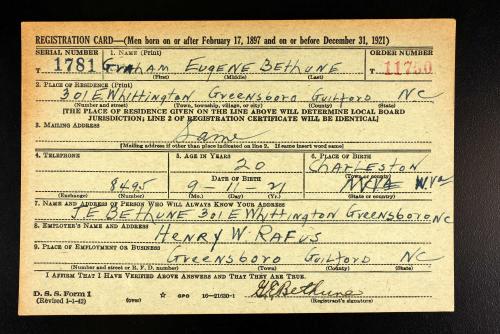 REGISTRATION CARD—(Men born on or after February 17, 1897 and on or before December 31, 1921)
SERIAL NUMBER 1. NAME (Print) ORDER NUMBER
T 1781 GRAHAM EUGENE BETHUNE T 11750
(First) (Middle) (Last)
2. PLACE OF RESIDENCE (Print)
301 E Whittington Greensboro Guilford NC
(Number and street) (Town, township, village, or city) (County) (State)
[THE PLACE OF RESIDENCE GIVEN ON THE LINE ABOVE WILL DETERMINE LOCAL BOARD
JURISDICTION; LINE 2 OF REGISTRATION CERTIFICATE WILL BE IDENTICAL]
3. MAILING ADDRESS
Same
[Mailing address if other than place indicated on line 2. If same insert word same]
4. TELEPHONE 5. AGE IN YEARS 6. PLACE OF BIRTH
20 Charleston
DATE OF BIRTH (Town or county)
8495 9-11-21 W.Va
(Exchange) (Number) (Mo.) (Day) (Yr.) (State or country)
7. NAME AND ADDRESS OF PERSON WHO WILL ALWAYS KNOW YOUR ADDRESS
J.E. Bethune 301 E Whittington Greensboro NC
8. EMPLOYER'S NAME AND ADDRESS
Henry W. Rafus
9. PLACE OF EMPLOYMENT OR BUSINESS
Greensboro Guilford NC
(Number and street or R. F. D. number) (Town) (County) (State)
I AFFIRM THAT I HAVE VERIFIED ABOVE ANSWERS AND THAT THEY ARE TRUE.
D. S. S. Form 1
(Revised 1-1-42) (over) ☆ GPO 16—21630-1
G E Bethune
(Registrant's signature)